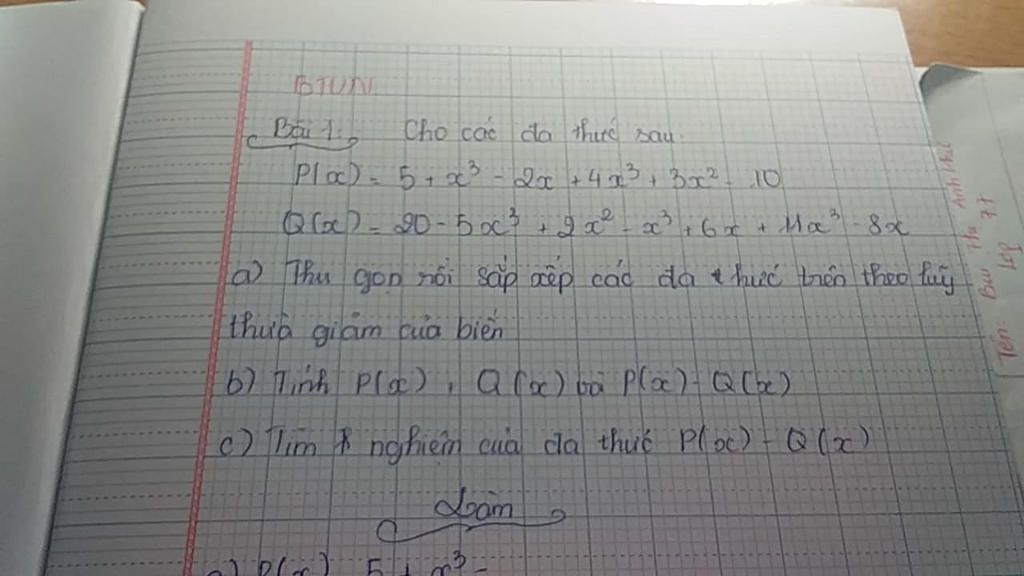 BTVN
Bài 1: Cho các đa thức sau.
P(x) = 5 + x³ - 2x + 4x³ + 3x² - 10
Q(x) = 20 - 5x³ + 2x² - x³ + 6x + 11x³ - 8x
a) Thu gọn rồi sắp xếp các đa thức trên theo luỹ
thừa giảm của biến
b) Tính P(x), Q(x) và P(x) - Q(x)
c) Tìm nghiệm của đa thức P(x) - Q(x)
Làm
a) P(x) 5 + x³ -
Tên: Lớp 7